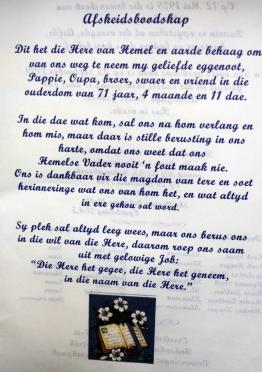 Afskeidsboodskap
Dit het die Here van Hemel en aarde behaag om
van ons weg te neem my geliefde eggenoot,
Pappie, Oupa, broer, swaer en vriend in die
ouderdom van 71 jaar, 4 maande en 11 dae.
In die dae wat kom, sal ons na hom verlang en
hom mis, maar daar is stille berusting in ons
harte, omdat ons weet dat ons
Hemelse Vader nooit 'n fout maak nie.
Ons is dankbaar vir die magdom van tere en soet
herinneringe wat ons van hom het, en wat altyd
in ere gehou sal word.
Sy plek sal altyd leeg wees, maar ons berus ons
in die wil van die Here, daarom roep ons saam
uit met gelowige Job:
"Die Here het gegee, die Here het geneem,
in die naam van die Here."